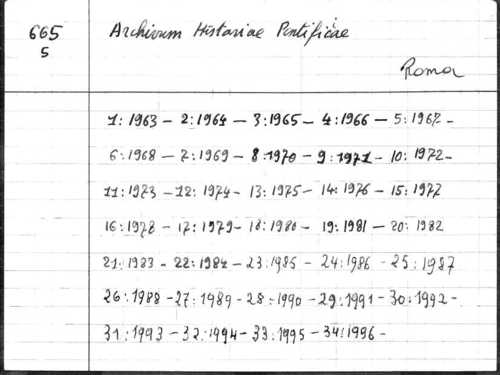 665 Archivum Historiae Pontificiae
5
Roma
1: 1963 – 2: 1964 – 3: 1965 – 4: 1966 – 5: 1967 –
6: 1968 – 7: 1969 – 8: 1970 – 9: 1971 – 10: 1972 –
11: 1973 – 12: 1974 – 13: 1975 – 14: 1976 – 15: 1977
16: 1978 – 17: 1979 – 18: 1980 – 19: 1981 – 20: 1982
21: 1983 – 22: 1984 – 23: 1985 – 24: 1986 – 25: 1987
26: 1988 – 27: 1989 – 28: 1990 – 29: 1991 – 30: 1992 –
31: 1993 – 32: 1994 – 33: 1995 – 34: 1996 –